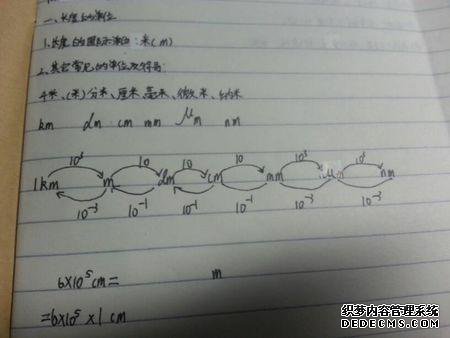 一、长度的单位
1.长度的国际单位：米(m)
2.其它常见的单位及符号:
千米、(米)分米、厘米、毫米、微米、纳米
km dm cm mm μm nm
10³ 10 10 10 10³ 10³
1km m dm cm mm μm nm
10⁻³ 10⁻¹ 10⁻¹ 10⁻¹ 10⁻³ 10⁻³
6×10⁵cm= m
=6×10⁵×1cm
织梦内容管理系统
DEDECMS.COM